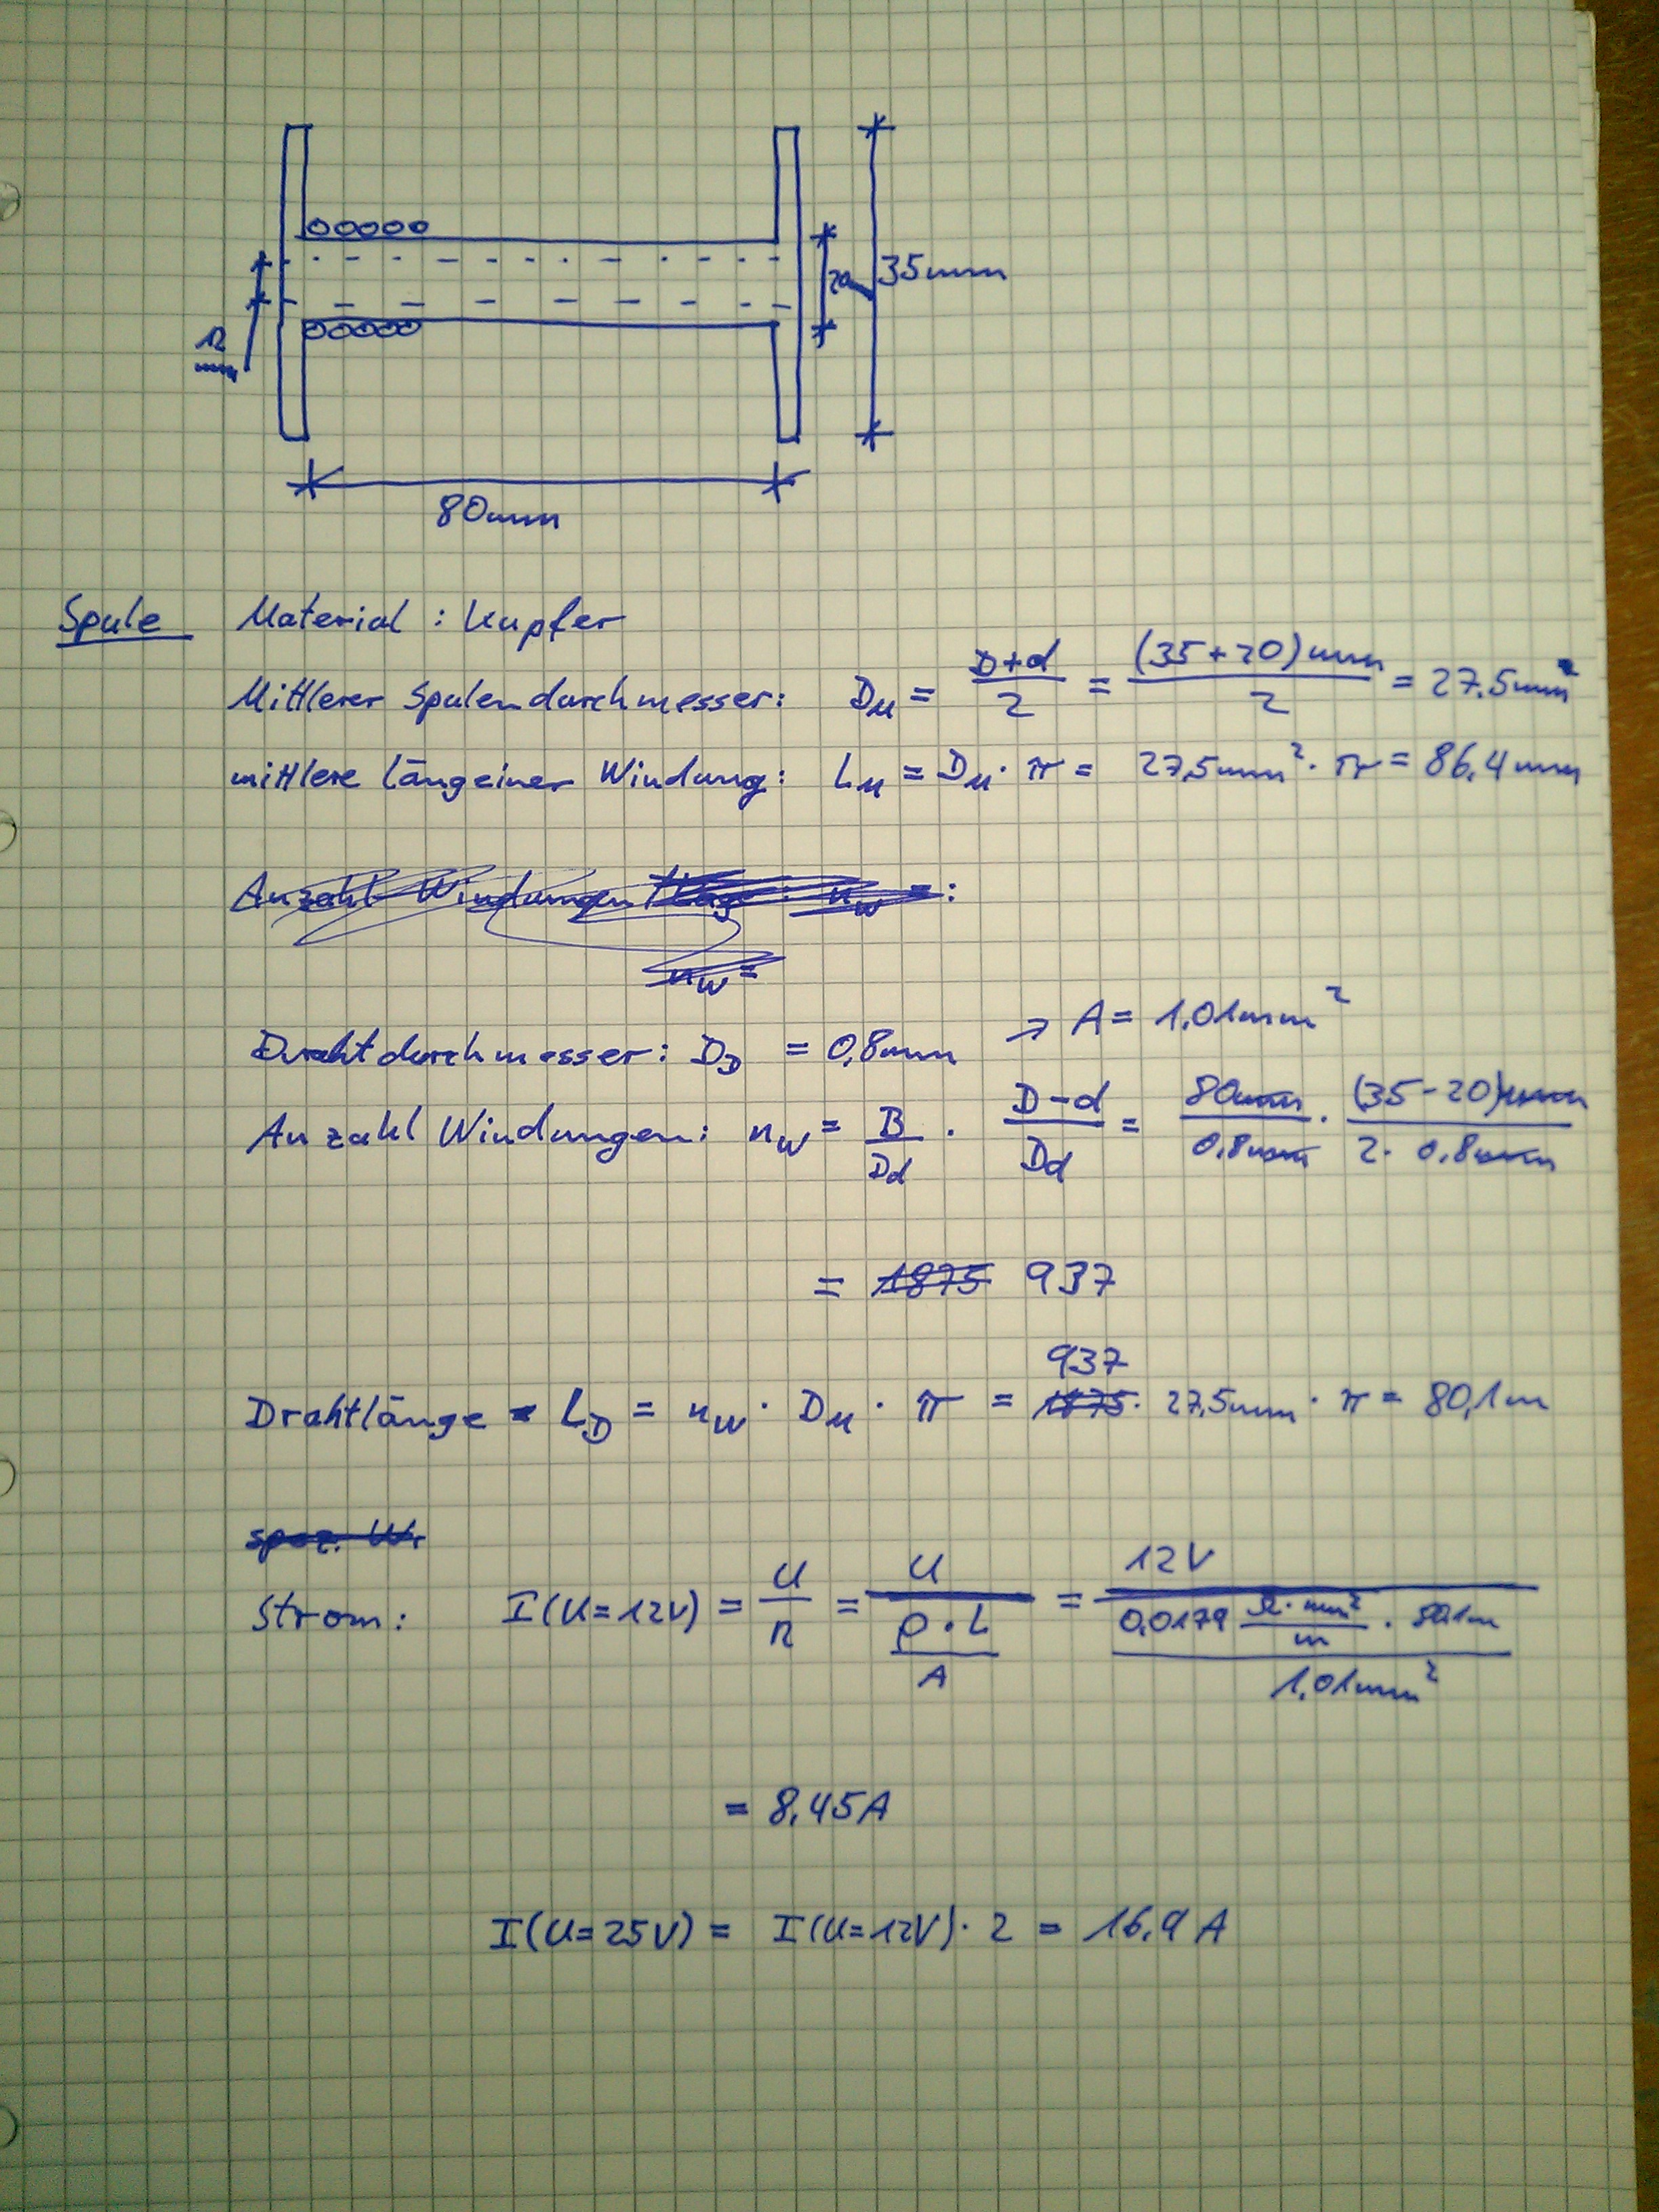 35mm
20
12
mm
80mm
Spule Material : Kupfer
Mittlerer Spulendurchmesser: D_M = (D+d)/2 = ((35+20)mm)/2 = 27.5mm
mittlere Längeiner Windung: L_M = D_M · π = 27,5mm² · π = 86,4mm
Anzahl Windungen : n_w = :
n_w =
Drahtdurchmesser: D_D = 0,8mm → A = 1,01mm²
Anzahl Windungen: n_w = B/Dd · (D-d)/Dd = 80mm/0,8mm · ((35-20)mm)/(2· 0,8mm)
= 1875 937
937
Drahtlänge = L_D = n_w · D_M · π = 1875 · 27,5mm · π = 80,1m
spez. W.
Strom: I(U=12V) = U/R = U/((ρ·L)/A) = 12V/((0,0179 (Ω·mm²)/m · 80,1m)/(1,01mm²))
= 8,45A
I(U=25V) = I(U=12V)· 2 = 16,9 A